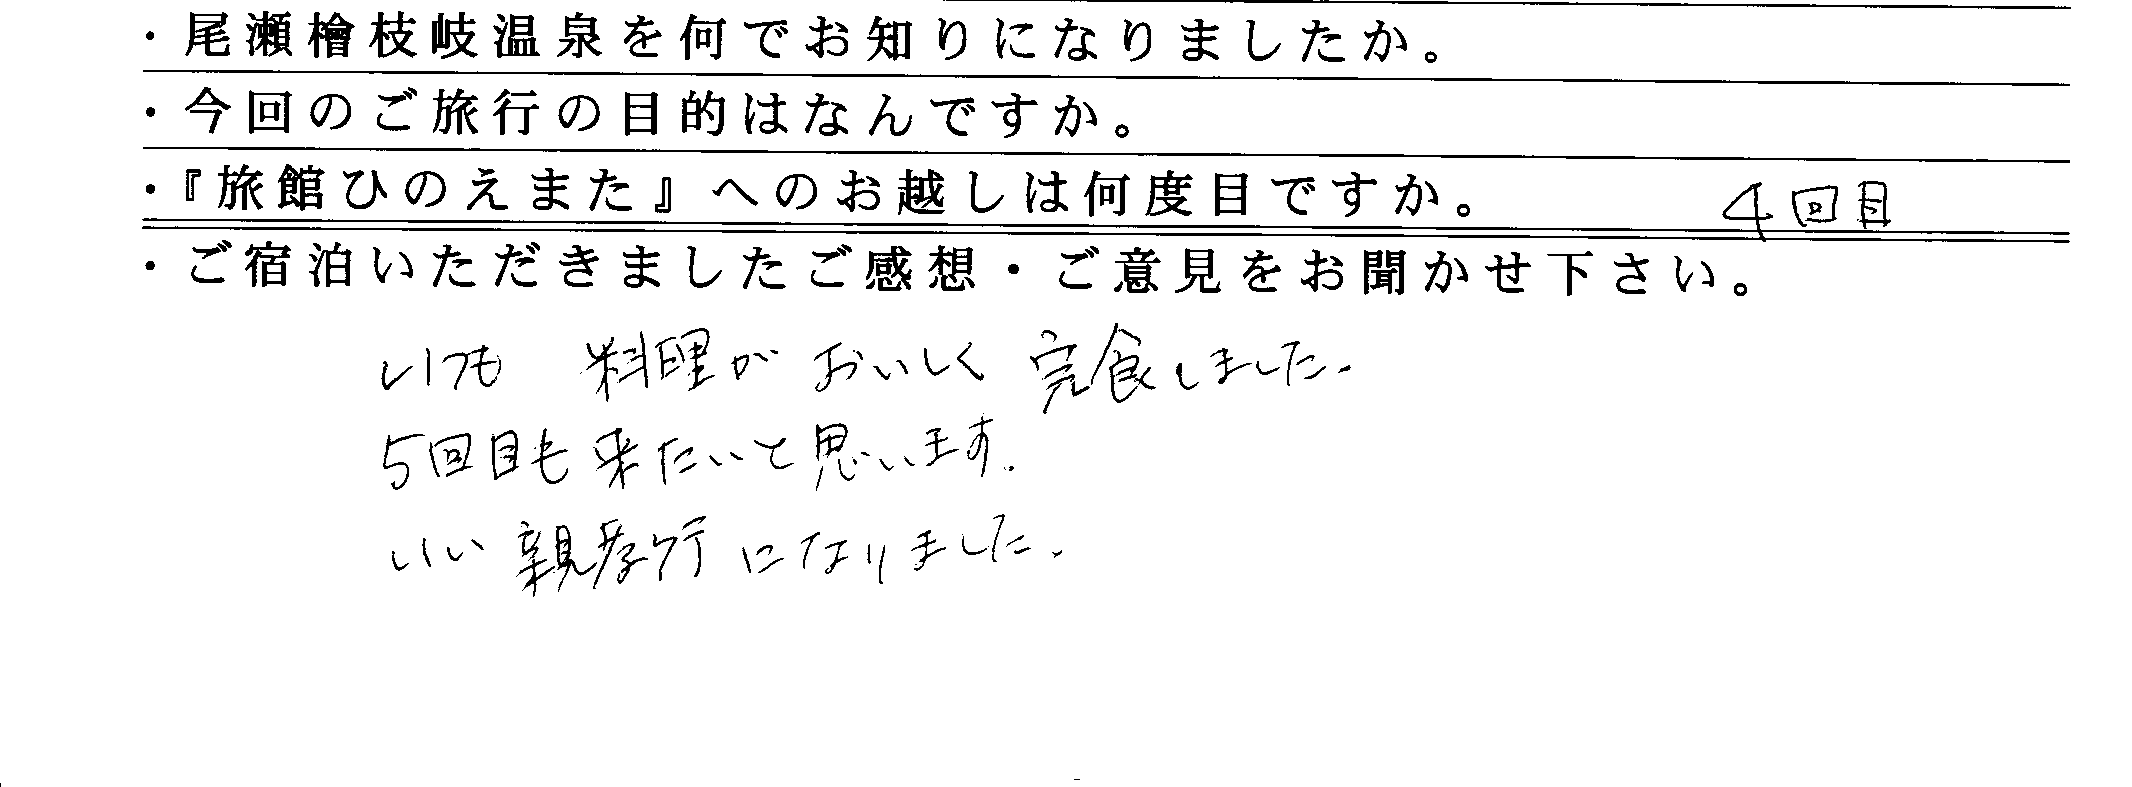 ・尾瀬檜枝岐温泉を何でお知りになりましたか。
・今回のご旅行の目的はなんですか。
・『旅館ひのえまた』へのお越しは何度目ですか。 4回目
・ご宿泊いただきましたご感想・ご意見をお聞かせ下さい。
いつも 料理が おいしく 完食しました.
5回目も来たいと思います.
いい親孝行になりました.